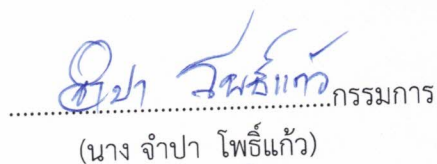 จำปา โพธิ์แก้ว กรรมการ
(นาง จำปา โพธิ์แก้ว)